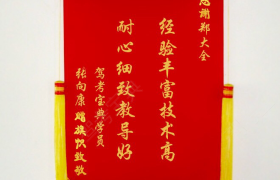 感谢郑大全
经验丰富技术高
耐心细致教导好
驾考宝典学员
张向康 赠旗致敬